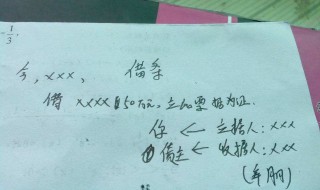 1/3,
今,xxx, 借条
借 xxxx 50万元,立此要据为证.
你 ← 立据人:xxx
借主 ← 收据人:xxx
(年月日)